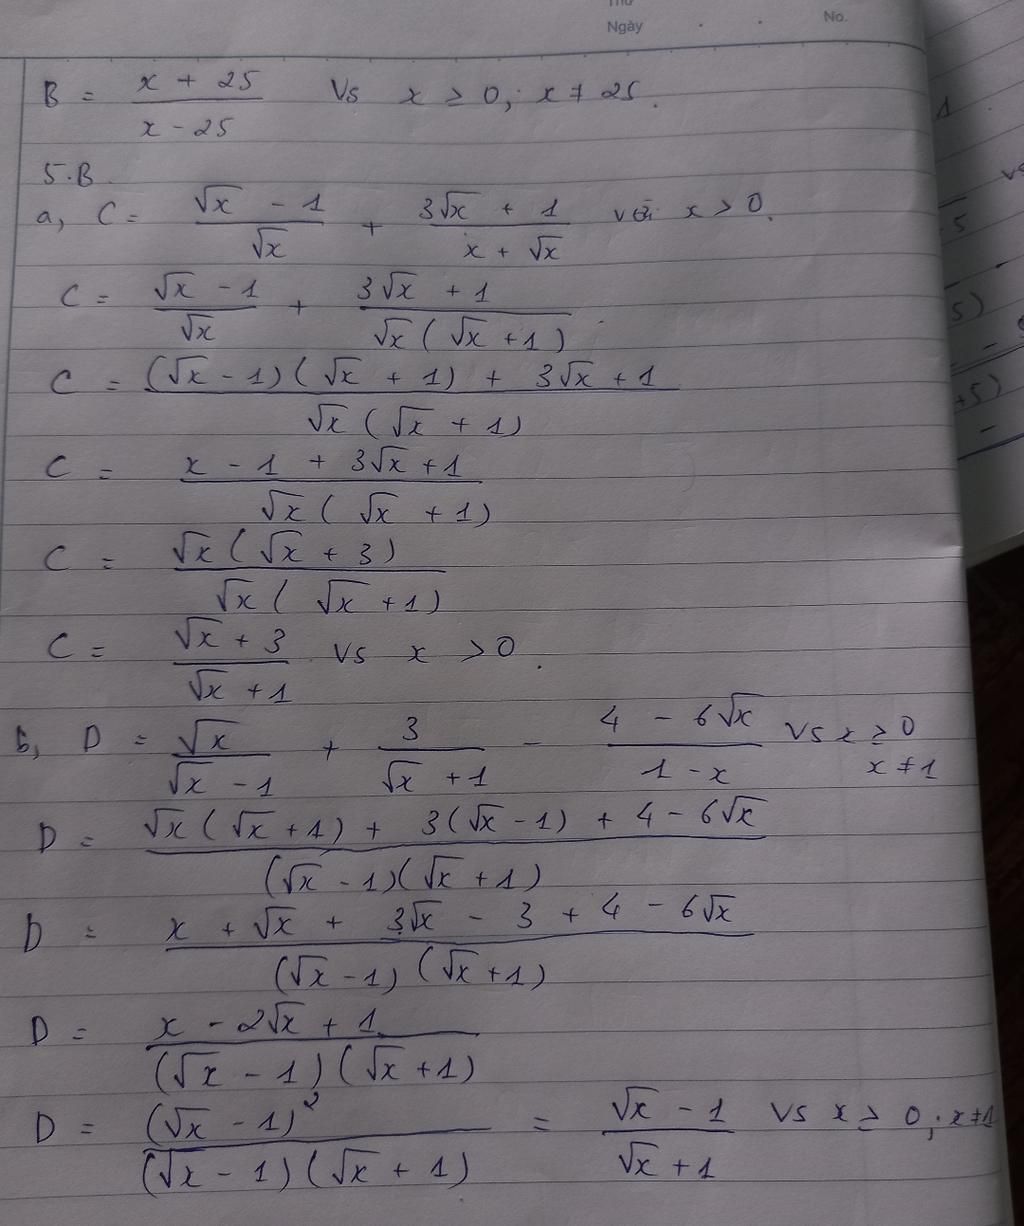 Thứ
Ngày . . No.
B = \frac{x + 25}{x - 25} Vs x ≥ 0; x ≠ 25.
5.B
a, C = \frac{√x - 1}{√x} + \frac{3√x + 1}{x + √x} với x > 0.
C = \frac{√x - 1}{√x} + \frac{3√x + 1}{√x(√x + 1)}
C = \frac{(√x - 1)(√x + 1) + 3√x + 1}{√x(√x + 1)}
C = \frac{x - 1 + 3√x + 1}{√x(√x + 1)}
C = \frac{√x(√x + 3)}{√x(√x + 1)}
C = \frac{√x + 3}{√x + 1} Vs x > 0.
b, D = \frac{√x}{√x - 1} + \frac{3}{√x + 1} - \frac{4 - 6√x}{1 - x} Vs x ≥ 0 x ≠ 1
D = \frac{√x(√x + 1) + 3(√x - 1) + 4 - 6√x}{(√x - 1)(√x + 1)}
D = \frac{x + √x + 3√x - 3 + 4 - 6√x}{(√x - 1)(√x + 1)}
D = \frac{x - 2√x + 1}{(√x - 1)(√x + 1)}
D = \frac{(√x - 1)^2}{(√x - 1)(√x + 1)} = \frac{√x - 1}{√x + 1} Vs x ≥ 0; x ≠ 1